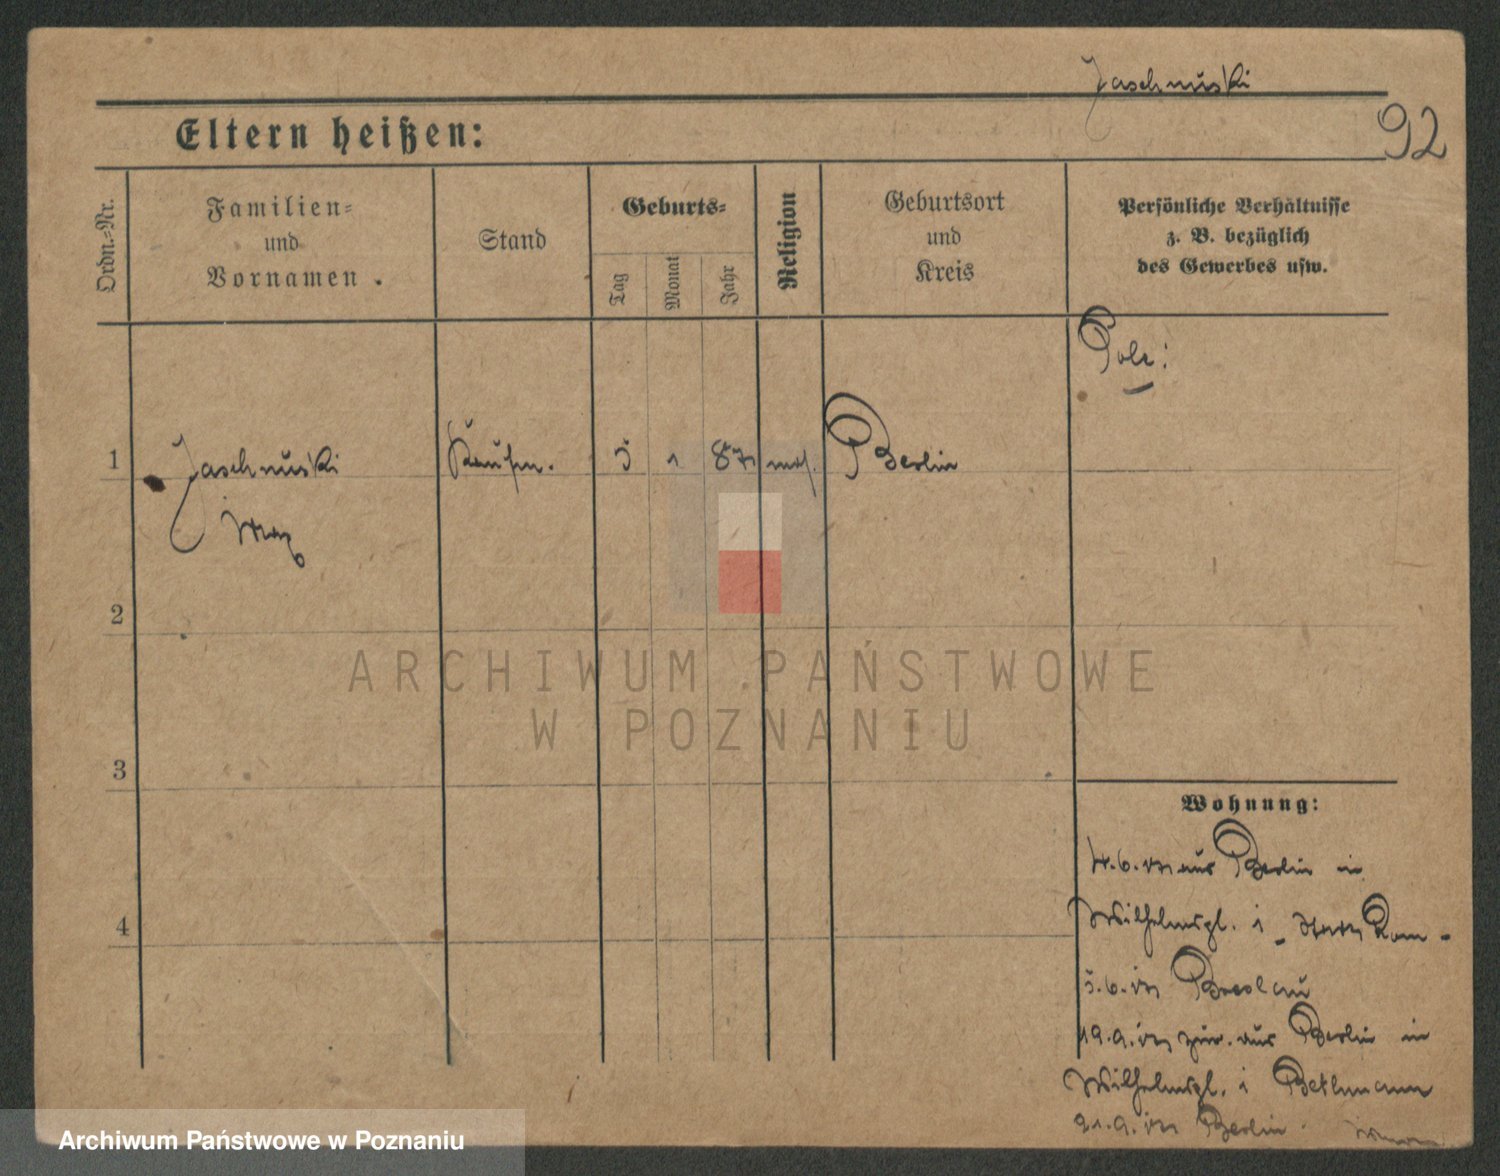 Jaschnuski
92
Eltern heißen:
Ordn.-Nr.
Familien-
und
Vornamen.
Stand
Geburts-
Tag
Monat
Jahr
Religion
Geburtsort
und
Kreis
Persönliche Verhältnisse
z. B. bezüglich
des Gewerbes usw.
Pole:
1 Jaschnuski Kaufm. 5 1 87 Berlin
Max
2
ARCHIWUM PAŃSTWOWE
W POZNANIU
3
Wohnung:
aus Berlin in
Wilhelmspl. 1
4
5.6. Breslau
19.9. zur. aus Berlin in
Wilhelmspl. 1 Bethmann
21.9. Berlin
Archiwum Państwowe w Poznaniu